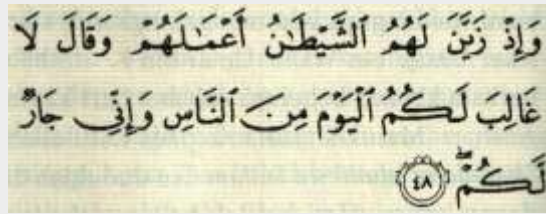 وَإِذْ زَيَّنَ لَهُمُ ٱلشَّيْطَٰنُ أَعْمَٰلَهُمْ وَقَالَ لَا
غَالِبَ لَكُمُ ٱلْيَوْمَ مِنَ ٱلنَّاسِ وَإِنِّي جَارٌ
لَّكُمْ ۖ ٤٨